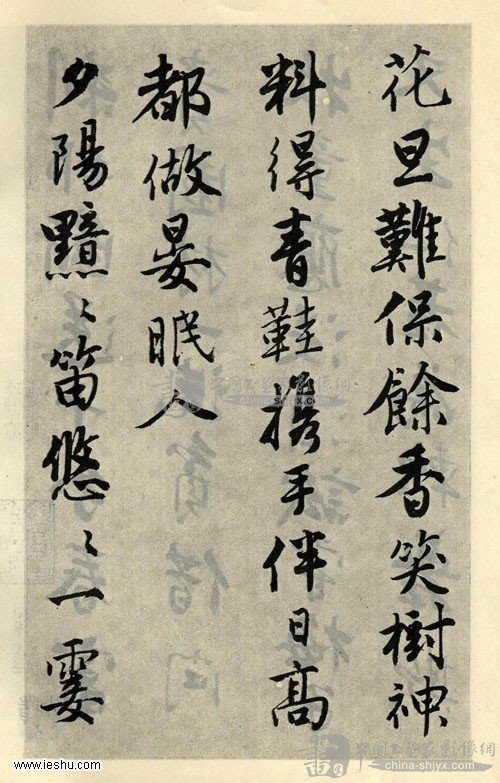 花旦難保餘香笑樹神
料得青鞋攜手伴日高
都做晏眠人
夕陽黯〻笛悠〻一霎
www.ieshu.com
www.china-shjyx.com